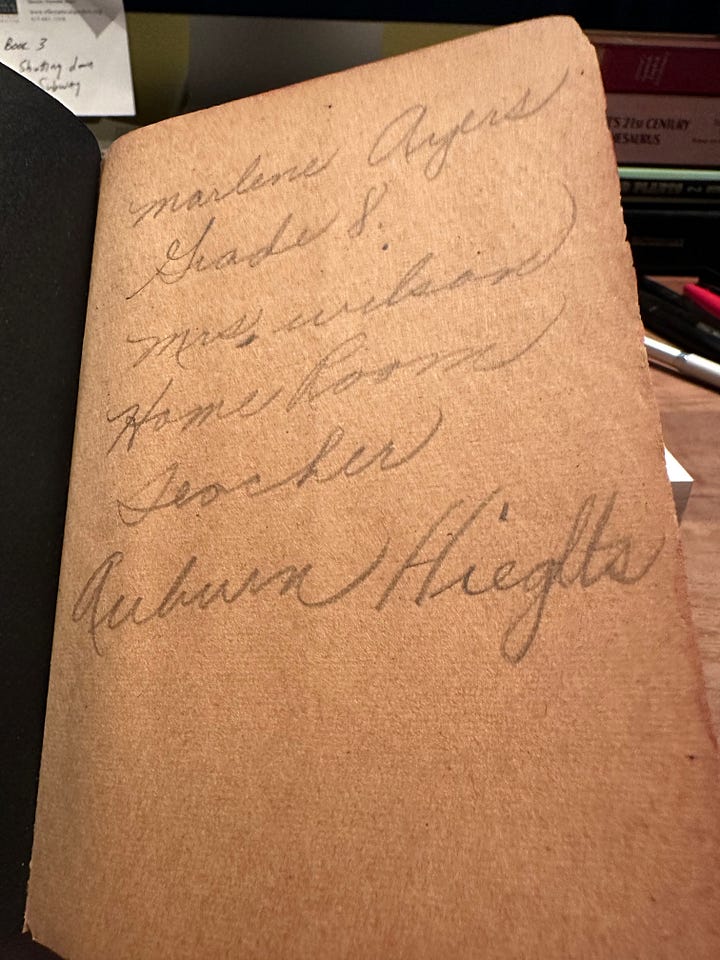 Book 3
Shutting down
Subway
marlene Ayers
Grade 8.
mrs. wilson
Home Room
Teacher
Auburn Hieglts
21st CENTURY